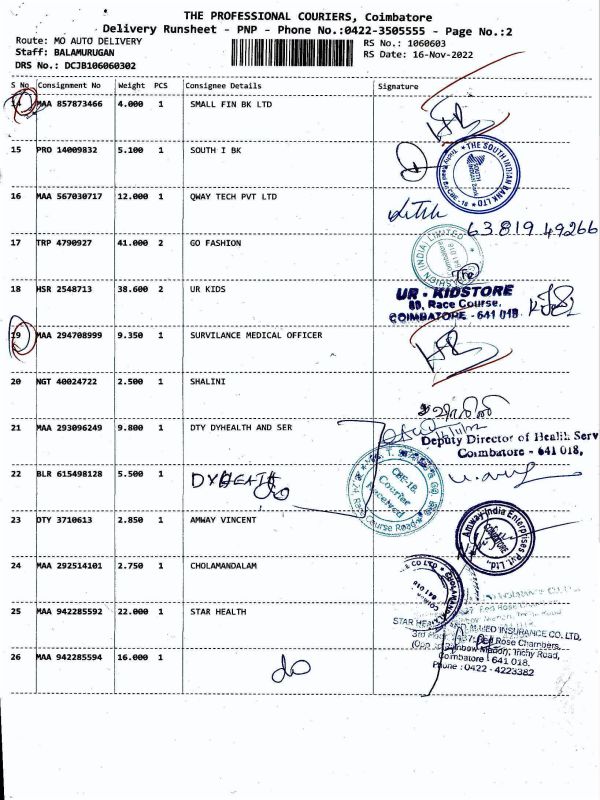 THE PROFESSIONAL COURIERS, Coimbatore
Delivery Runsheet - PNP - Phone No.:0422-3505555 - Page No.:2
Route: MO AUTO DELIVERY
RS No.: 1060603
Staff: BALAMURUGAN
RS Date: 16-Nov-2022
DRS No.: DCJB106060302
S No Consignment No Weight PCS Consignee Details Signature
14 MAA 857873466 4.000 1 SMALL FIN BK LTD
15 PRO 14009832 5.100 1 SOUTH I BK
THE SOUTH INDIAN BANK LTD
16 MAA 567030717 12.000 1 QWAY TECH PVT LTD
63819 49266
17 TRP 4790927 41.000 2 GO FASHION
(INDIA) LIMITED
641 018
18 HSR 2548713 38.600 2 UR KIDS
UR - KIDSTORE
80, Race Course,
COIMBATORE - 641 018.
19 MAA 294708999 9.350 1 SURVILANCE MEDICAL OFFICER
20 NGT 40024722 2.500 1 SHALINI
21 MAA 293096249 9.800 1 DTY DYHEALTH AND SER
Deputy Director of Health Serv
Coimbatore - 641 018,
22 BLR 615498128 5.500 1 DYHEALTH do
CBE-18.
Courier
Received
Race Course Road
23 DTY 3710613 2.850 1 AMWAY VINCENT
Amway India Enterprises Pvt. Ltd.
COIMBATORE
24 MAA 292514101 2.750 1 CHOLAMANDALAM
641 018
25 MAA 942285592 22.000 1 STAR HEALTH
STAR HEALTH
INSURANCE CO. LTD,
3rd Floor
Red Rose Chambers,
Trichy Road,
Coimbatore 641 018.
Phone : 0422 - 4223382
26 MAA 942285594 16.000 1 do